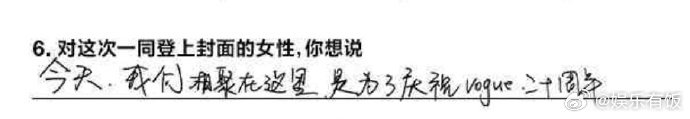 6. 对这次一同登上封面的女性,你想说
今天.我们相聚在这里 是为了庆祝 vogue 二十周年
@娱乐有饭